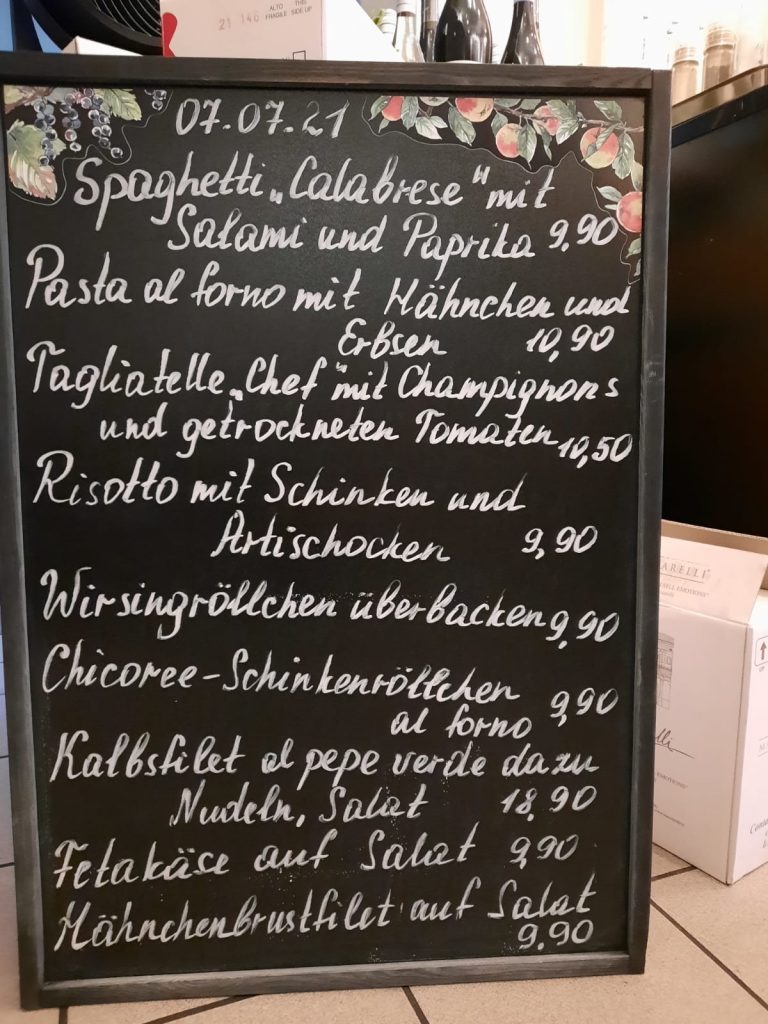 21 146
ALTO
FRAGILE
THIS
SIDE UP
07.07.21
Spaghetti „Calabrese" mit
Salami und Paprika 9,90
Pasta al forno mit Hähnchen und
Erbsen 10,90
Tagliatelle „Chef" mit Champignons
und getrockneten Tomaten 10,50
Risotto mit Schinken und
Artischocken 9,90
Wirsingröllchen überbacken 9,90
Chicoree-Schinkenröllchen
al forno 9,90
Kalbsfilet al pepe verde dazu
Nudeln, Salat 18,90
Fetakäse auf Salat 9,90
Hähnchenbrustfilet auf Salat
9,90
ARELLI
SELL EMOTIONS"
UP